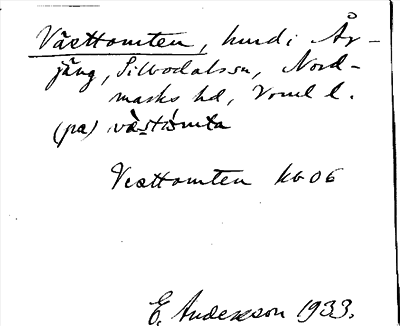 Västtomten, hmd i År-
jäng, Silbodals sn, Nord-
marks hd, Vrml l.
(pa) våst tòmta
Vesttomten kb 06
E. Andersson 1933.